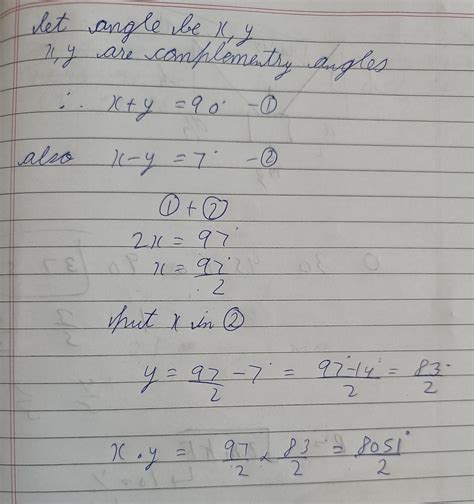 let angle be x, y
x, y are complementry angles
∴ x+y = 90° -①
also x-y = 7° -②
① + ②
2x = 97°
x = 97°/2
put x in ②
y = 97/2 - 7° = 97°-14°/2 = 83°/2
x . y = 97/2 × 83/2 = 8051°/2